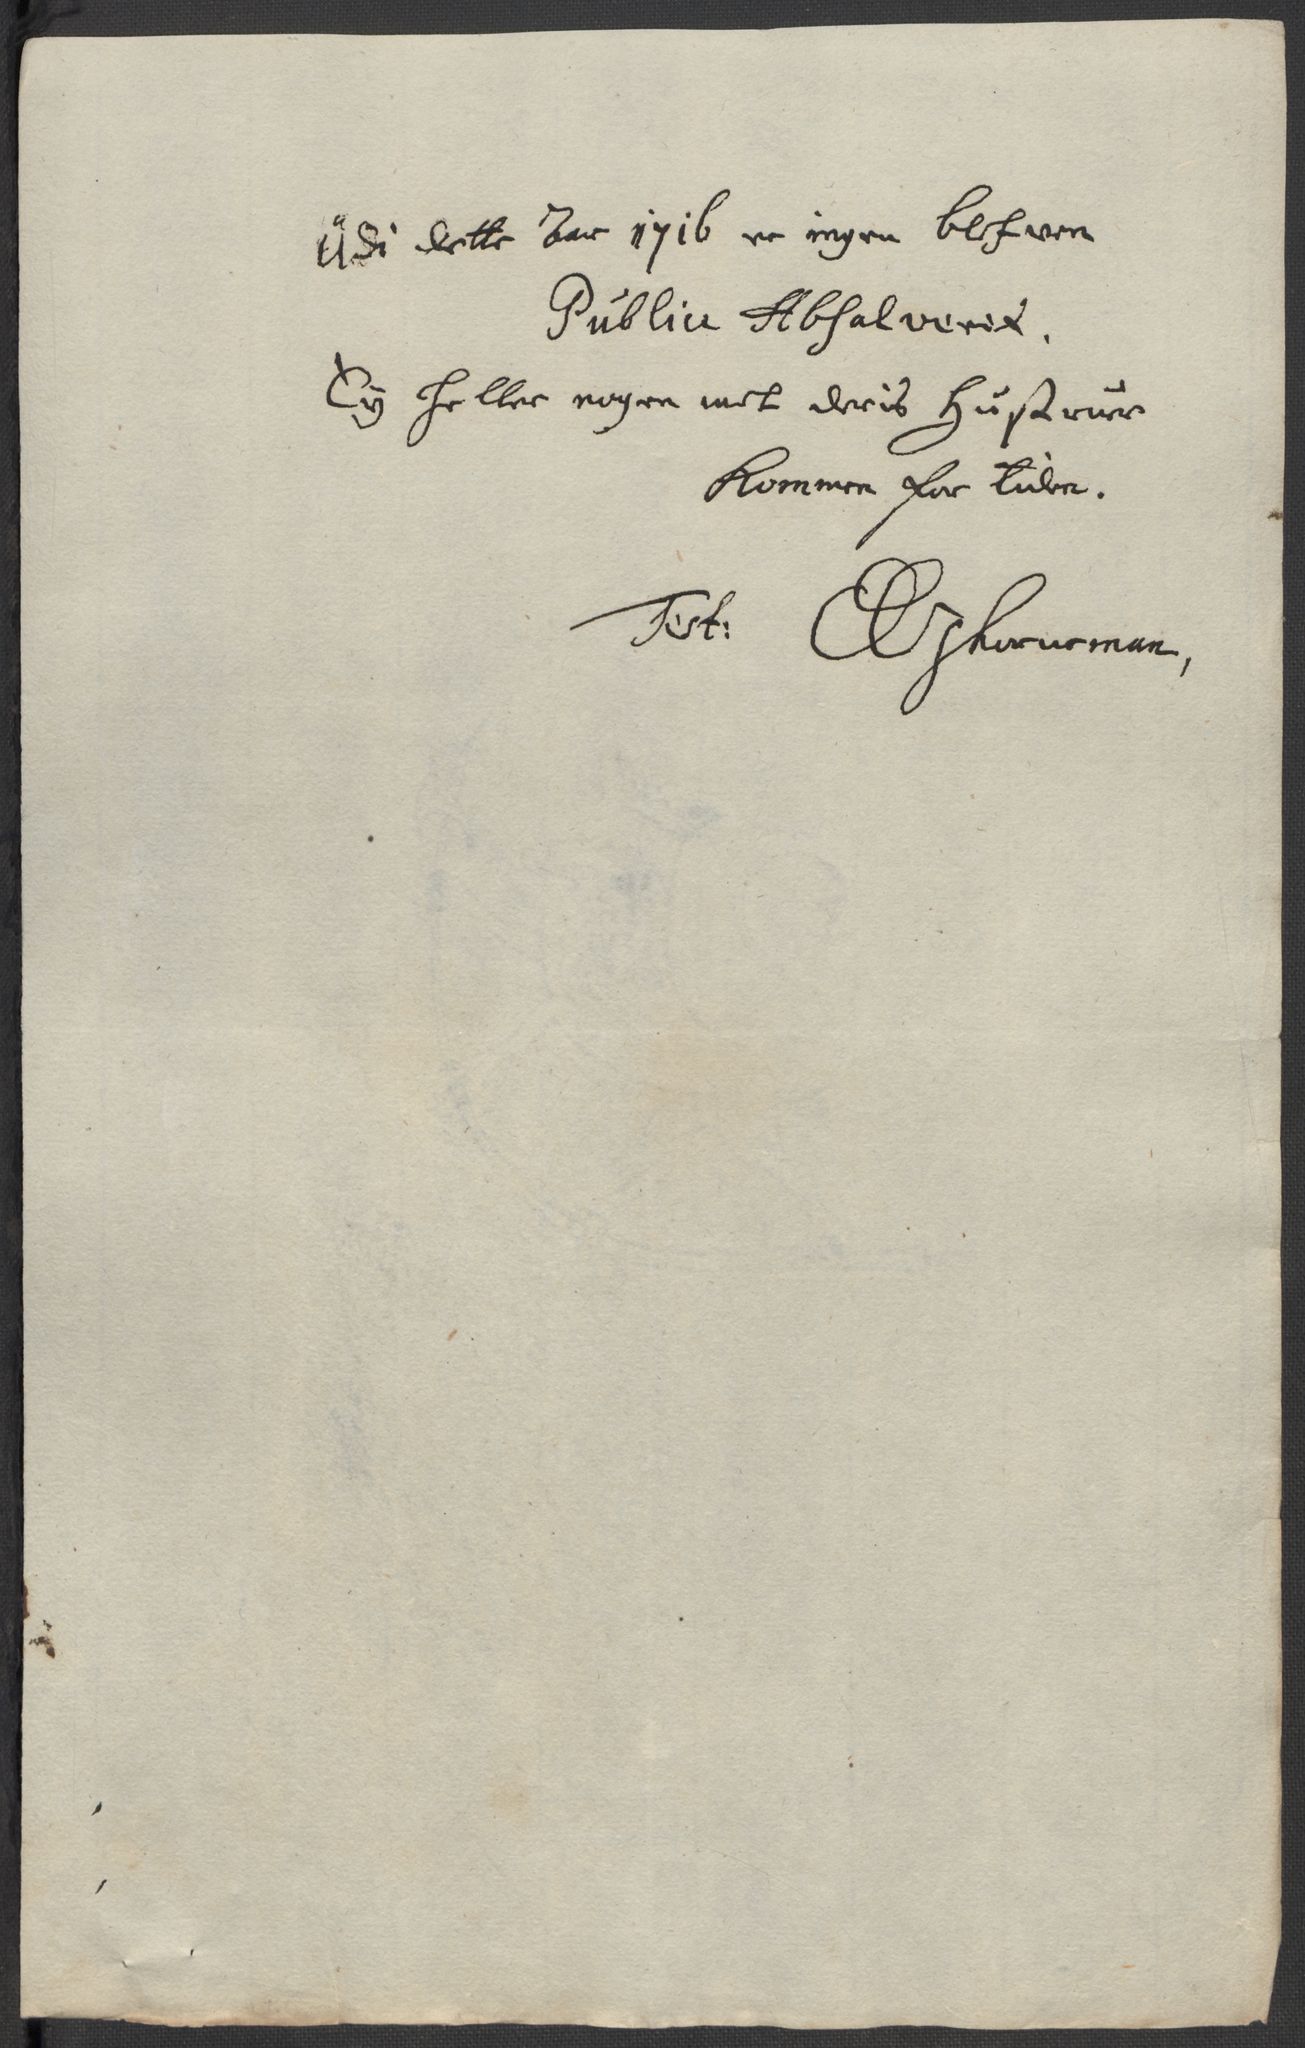 Udi dette Aar 1716 er ingen blefven
Public Absolverit.
Ey heller nogen med deris Hustruer
kommen for tiden.
Test: